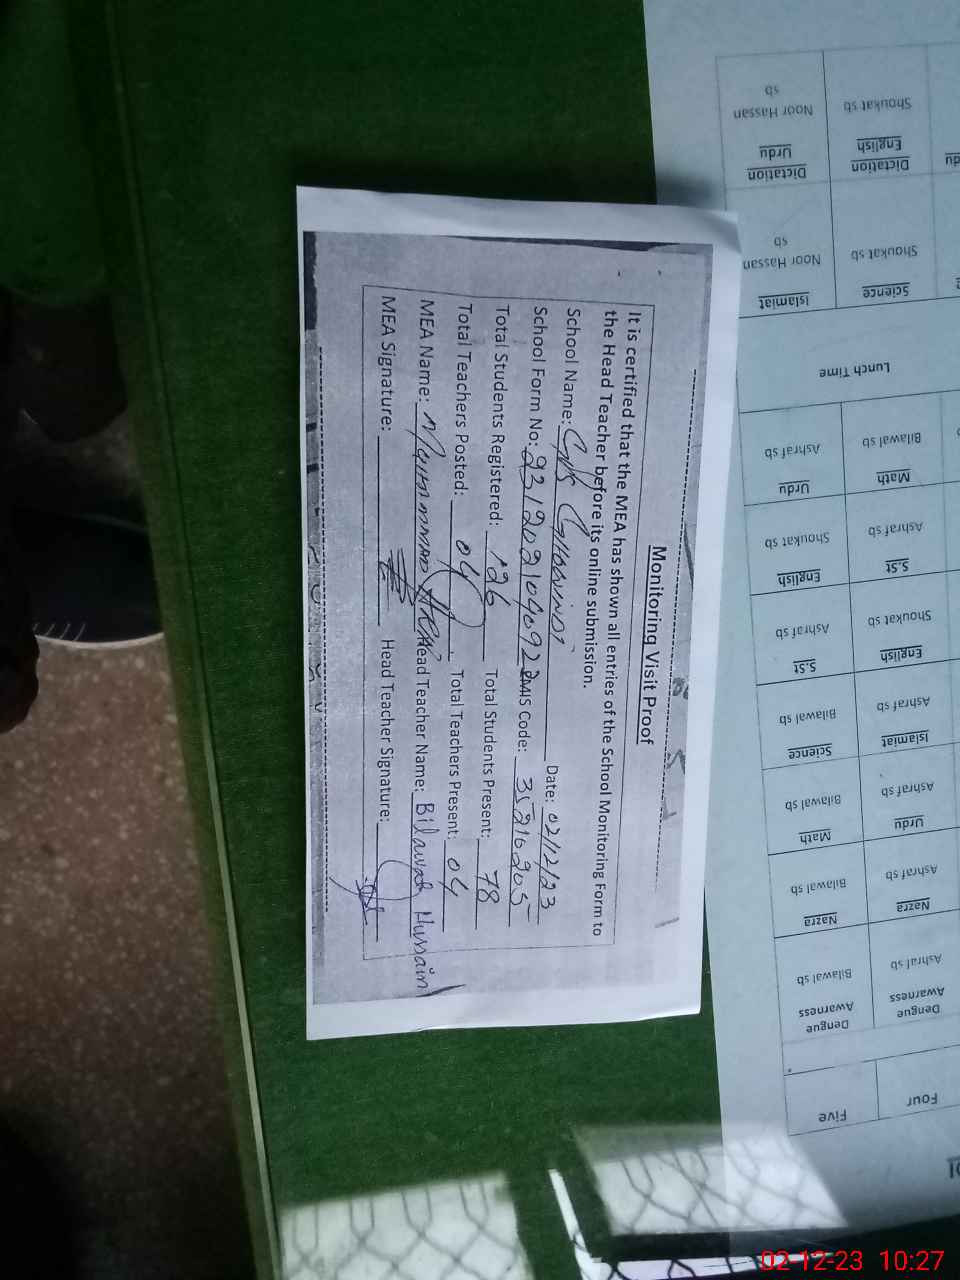 Monitoring Visit Proof
It is certified that the MEA has shown all entries of the School Monitoring Form to
the Head Teacher before its online submission.
School Name: Date: 02/12/23
School Form No: EMIS Code: 35210205
Total Students Registered: 126 Total Students Present: 78
Total Teachers Posted: 04 Total Teachers Present: 04
MEA Name: Head Teacher Name: Bilawal Hussain
MEA Signature: Head Teacher Signature:
Four Five
Dengue Awarness Ashraf sb Dengue Awarness Bilawal sb
Nazra Ashraf sb Nazra Bilawal sb
Urdu Ashraf sb Math Bilawal sb
Islamiat Ashraf sb Science Bilawal sb
English Shoukat sb S.St Ashraf sb
S.St Ashraf sb English Shoukat sb
Math Bilawal sb Urdu Ashraf sb
Lunch Time
Science Shoukat sb Islamiat Noor Hassan sb
Dictation English Shoukat sb Dictation Urdu Noor Hassan sb
02-12-23 10:27